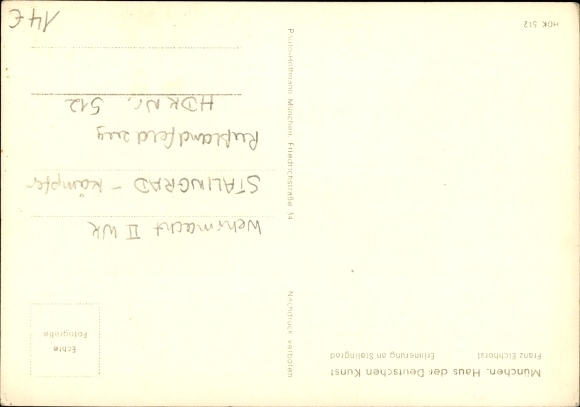 München, Haus der Deutschen Kunst
Franz Eichhorst Erinnerung an Stalingrad
HDK 512
Nachdruck verboten
Photo-Hoffmann München, Friedrichstraße 34
Echte
Fotografie
Wehrmacht II WK
STALINGRAD - Kämpfer
Rußlandfeldzug
HDK Nr. 512
14 €